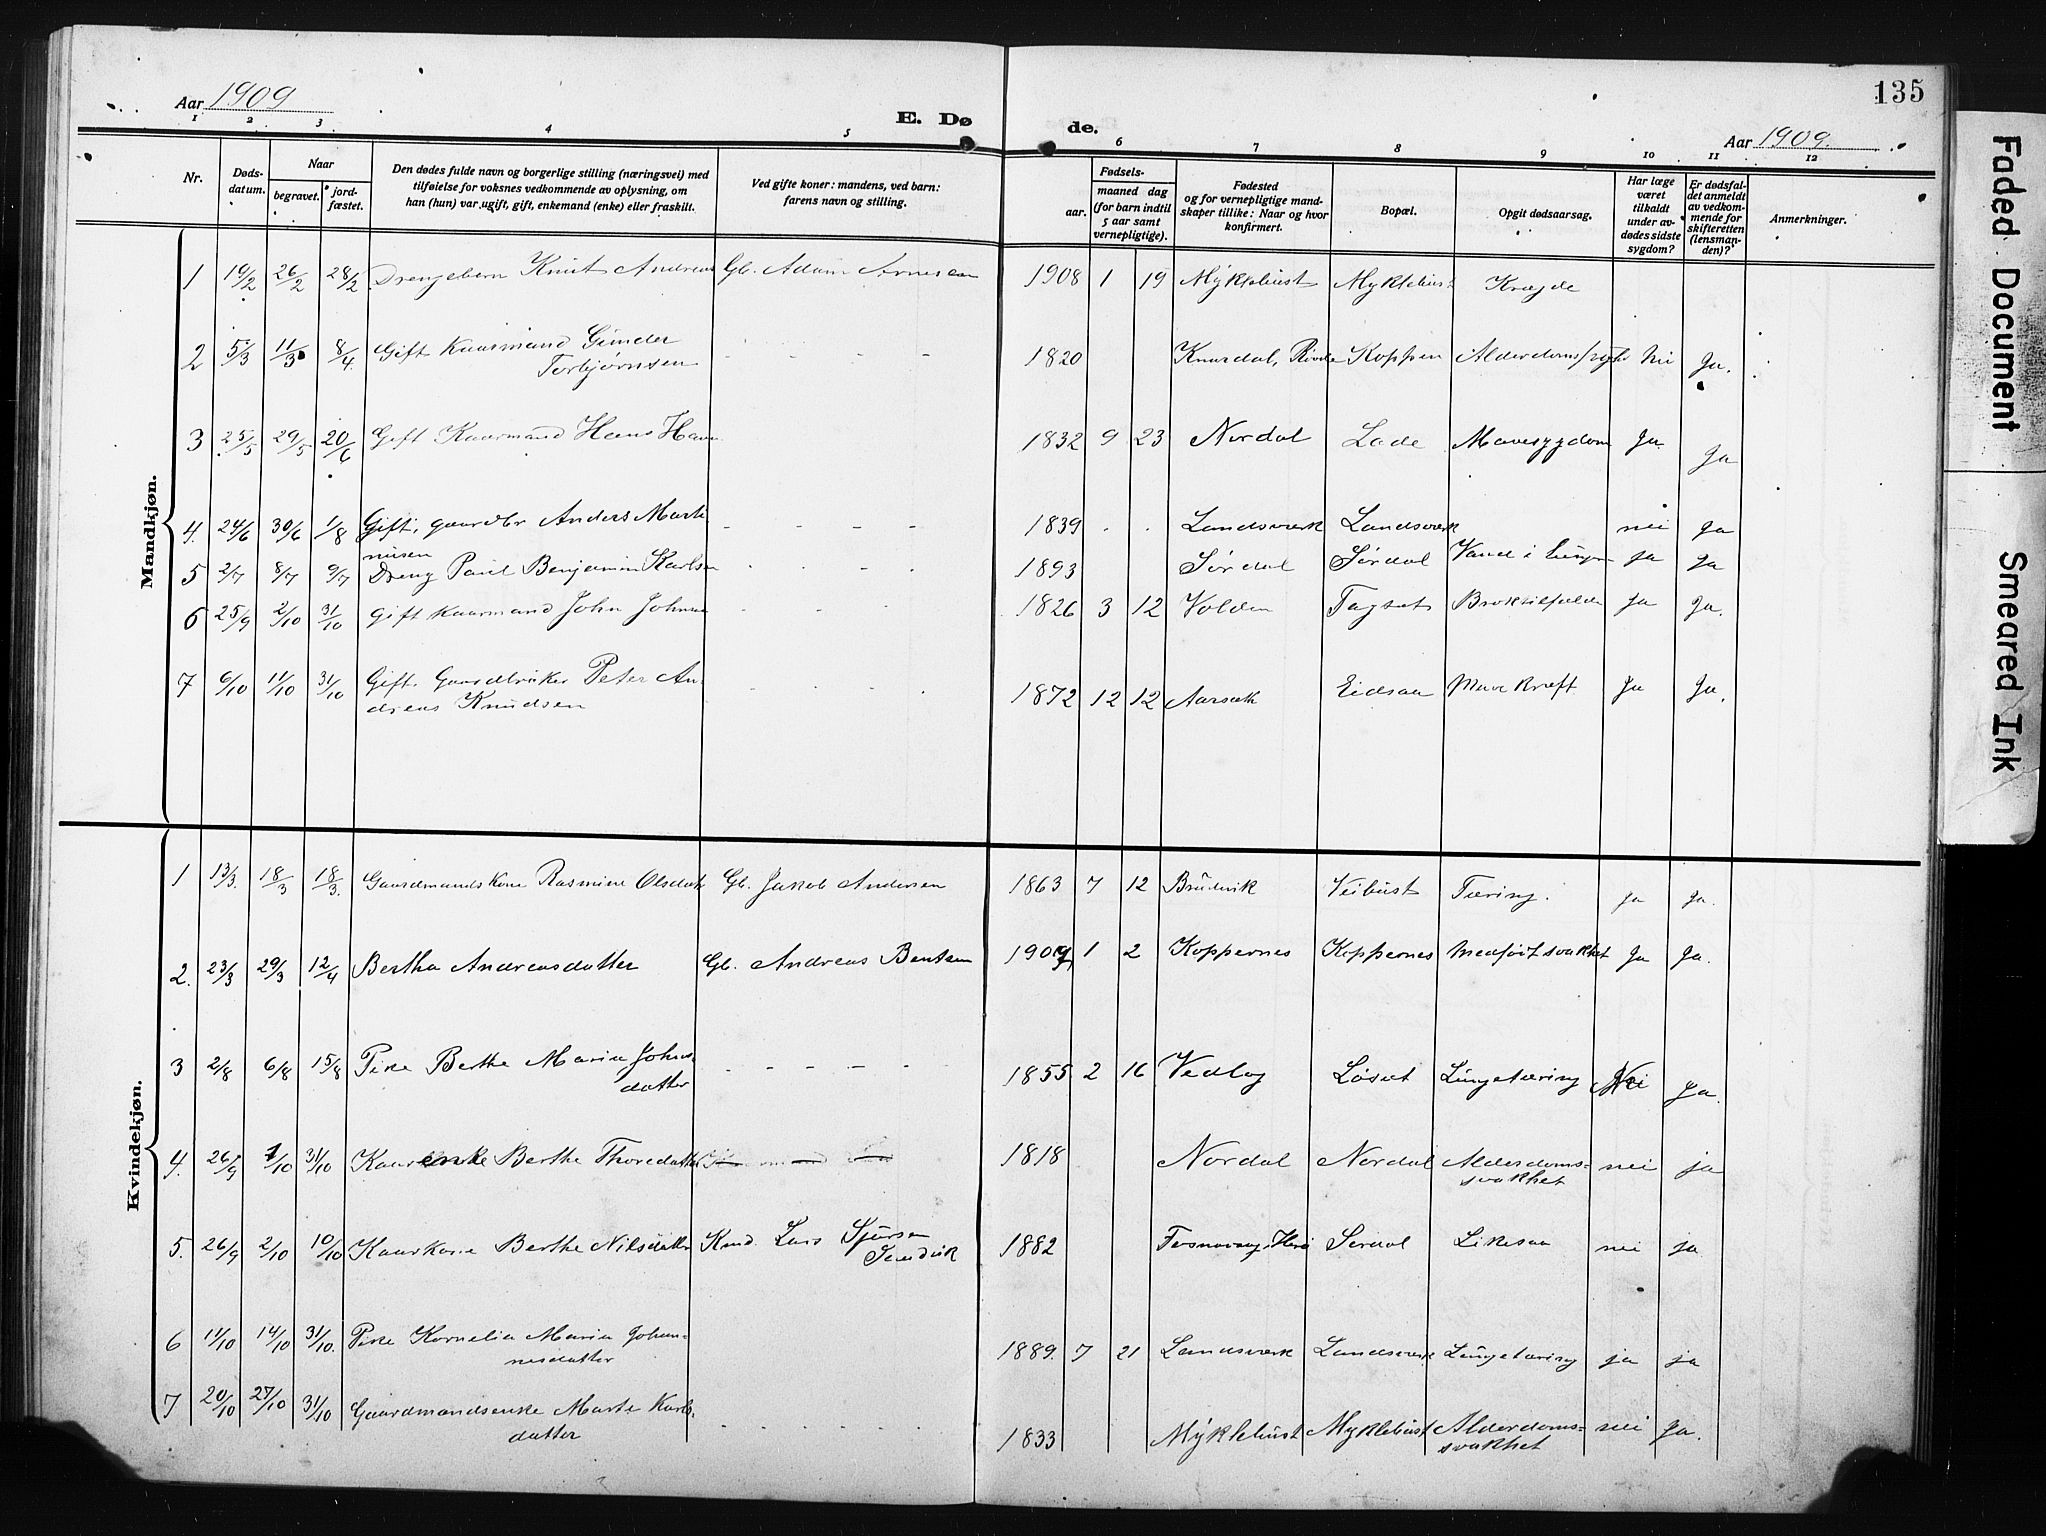 135
Aar 1909
E. Dø de.
Aar 1909.
1 2 3 4 5 6 7 8 9 10 11 12
Nr.
Døds-
datum.
Naar
begravet.
jord-
fæstet.
Den dødes fulde navn og borgerlige stilling (næringsvei) med
tilføielse for voksnes vedkommende av oplysning, om
han (hun) var ugift, gift, enkemand (enke) eller fraskilt.
Ved gifte koner: mandens, ved barn:
farens navn og stilling.
Fødsels-
aar.
maaned dag
(for barn indtil
5 aar samt
vernepligtige).
Fødested
og for vernepligtige mand-
skaper tillike: Naar og hvor
konfirmert.
Bopæl.
Opgit dødsaarsag.
Har læge
været
tilkaldt
under av-
dødes sidste
sygdom?
Er dødsfal-
det anmeldt
av vedkom-
mende for
skifteretten
(lensman-
den)?
Anmerkninger.
Mandkjøn.
1 19/2 26/2 28/2 Drengebarn Knut Andreas Gb. Adam Arnesen 1908 1 19 Myklebust Myklebust
2 5/3 11/3 8/4. Gift Kaarmand Gunder
Torbjørnsen - - - - 1820 Knardal, Koppen nei Ja.
3 25/5 29/5 20/6 Gift Kaarmand Hans 1832 9 23 Nordal Lade Mavesygdom Ja. Ja
4. 24/6 30/6 1/8 Gift, gaardbr Anders Marti
nusen - - - - 1839 . . Landsverk Landsverk nei Ja
5 2/7 8/7 9/7 Dreng Paul Benjamin Karlsen - - - - 1893 Sørdal Sørdal Vand i ja Ja
6 25/9 2/10 31/10 Gift Kaarmand John - - - - 1826 3 12 Volden ja Ja.
7 6/10 11/10 31/10 Gift Gaardbruker Peter An-
dreas Knudsen - - - - 1872 12 12 Eidsaa Mave Kræft Ja Ja.
Kvindekjøn.
1 13/3. 18/3 18/3. Gaardmandskone Rasmine Olsdatt Gb. Jakob Andersen 1863 7 12 Brudevik Veibust Tæring. ja Ja.
2. 23/3 29/3 12/4 Bertha Andreasdatter Gb. Andreas Bentsen 1909 1 2 Koppernes Koppernes Medført svakhet Ja Ja.
3 2/8 6/8 15/8 Pike Berthe Marie Johns-
datter - - - - - 1855 2 16 Vedlog Løset Lungetæring Nei Ja.
4. 26/9 1/10 31/10 Kaarenke Berthe Thoredatter 1818 Nordal Nordal Alderdoms-
svakhet nei ja
5. 26/9 2/10 10/10 Kaarkone Berthe Nilsdatter Kmd. Lars Sjursen
1882 Sørdal nei ja
6 11/10 14/10 31/10. Pike Kornelia Marie Johan-
nesdatter 1889. 7 21 Landsverk Landsverk Lungetæring ja ja
7 20/10 27/10 31/10 Gaardmandsenke Marte Karls-
datter - - - - 1833 Myklebust Myklebust Alderdoms-
svakhet nei Ja.
Faded Document
Smeared Ink